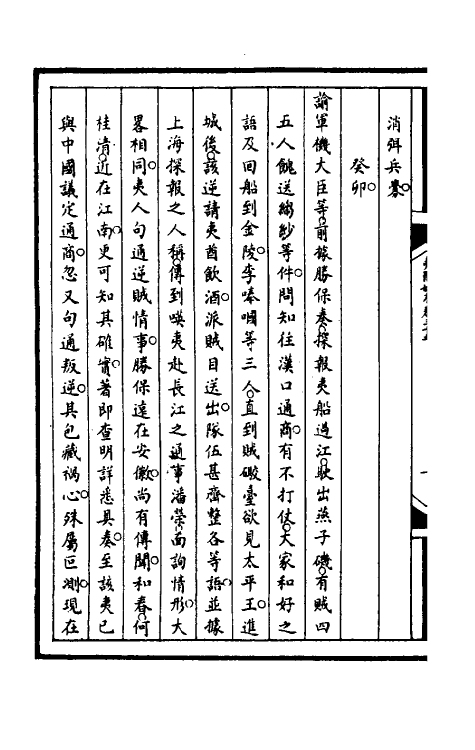 消弭兵釁。
癸卯。
諭軍機大臣等。前據勝保奏。探報夷船過江。駛出燕子磯。有賊四
五人餽送縐紗等件。問知往漢口通商。有不打仗。大家和好之
語。及回船到金陵。李嗪嘓等三人。直到賊礮臺。欲見太平王。進
城後。該逆請夷酋飲酒。派賊目送出。隊伍甚齊整各等語。並據
上海探報之人稱。傳到㖟夷赴長江之通事潘榮。面詢情形。大
畧相同。夷人句通逆賊情事。勝保遠在安徽。尚有傳聞。和春。何
桂清。近在江南。更可知其確實。著即查明詳悉具奏。至該夷已
與中國議定通商。忽又句通叛逆。其包藏禍心。殊屬叵測。現在